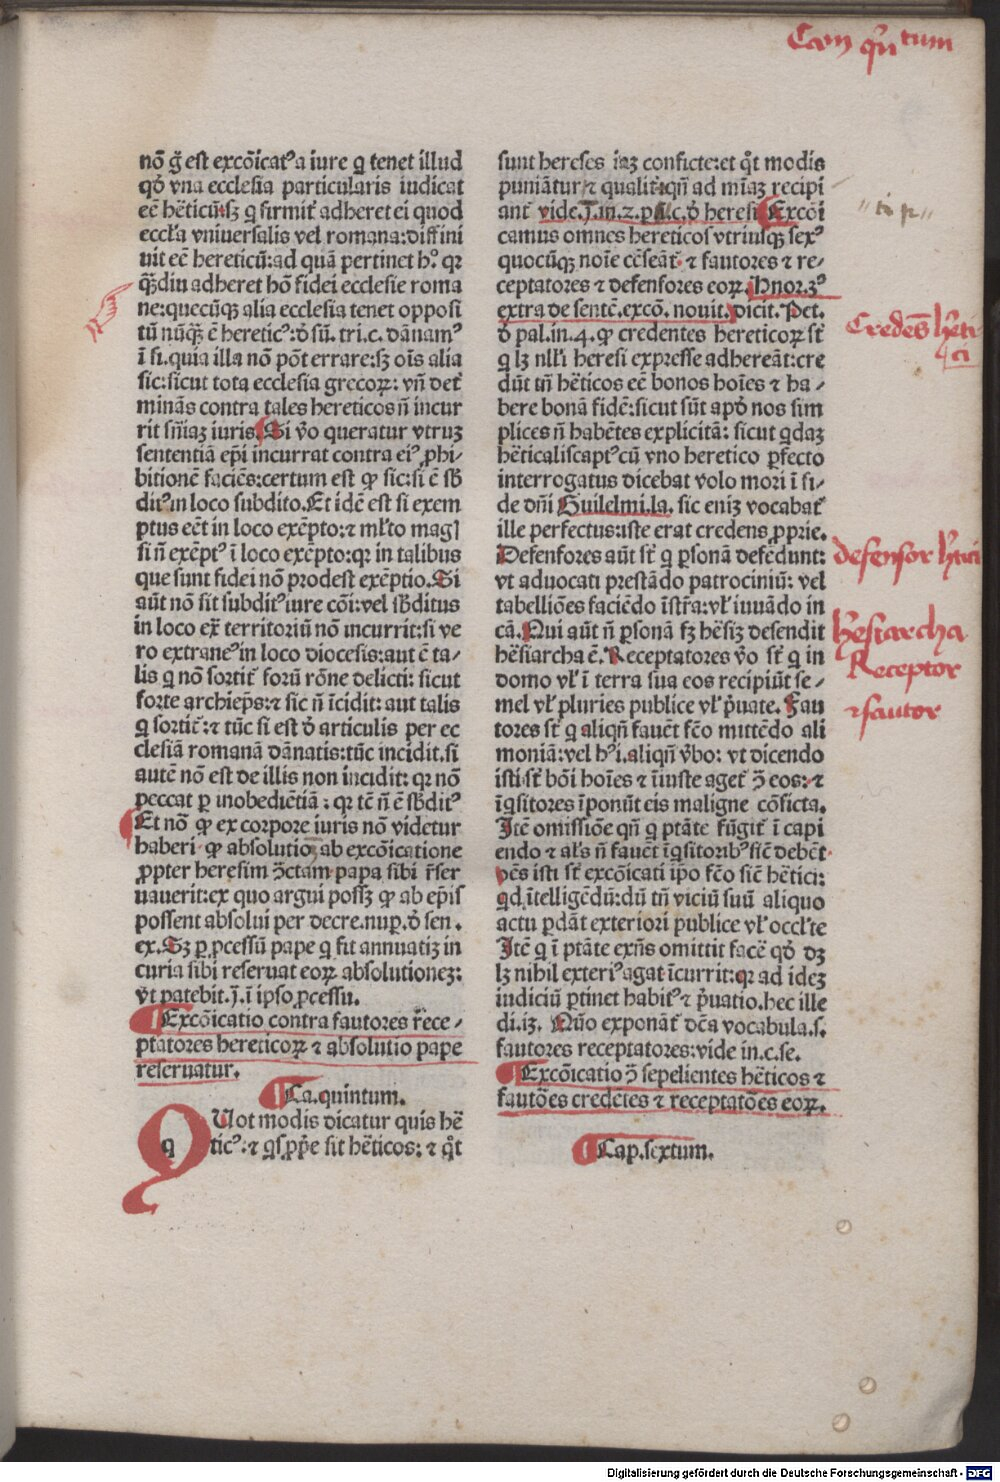 Cam quintum
nõ g̃ est excõicatꝰ a iure q̃ tenet illud
qđ vna ecclesia particularis iudicat
eē hēticũ: sꝫ q firmit̃ adheret ei quod
eccl̃a vniuersalis vel romana: diffini
uit eē hereticũ: ad quã pertinet hꝰ. qꝛ
q̃diu adheret hõ fidei ecclesie roma
ne: quecũqꝫ alia ecclesia tenet opposi
tũ nũqꝫ̃ ē hereticꝰ: đ sũ. tri. c. dãnamꝰ
ĩ si. quia illa nõ põt errare: sꝫ oĩs alia
sic: sicut tota ecclesia grecoꝝ: vñ det̃
minãs contra tales hereticos ñ incur
rit sñiaꝫ iuris. Si ṽo queratur vtruꝫ
sententiã ep̃i incurrat contra eiꝰ ꝓhi-
bitionē faciẽs: certum est ꝙ sic: si ē sb̃
ditꝰ in loco subdito. Et idẽ est si exem
ptus eẽt in loco exẽpto: ⁊ ml̃to magꝭ
si ñ exẽptꝰ ĩ loco exẽpto: qꝛ in talibus
que sunt fidei nõ prodest exẽptio. Si
aũt nõ sit subditꝰ iure cõi: vel sb̃ditus
in loco ex̃ territoriũ nõ incurrit: si ve
ro extraneꝰ in loco diocesis: aut ē ta-
lis q nõ sortit̃ forũ rõne delicti: sicut
forte archiep̃s: ⁊ sic ñ ĩcidit: aut talis
q sortit̃: ⁊ tũc si est đ articulis per ec
clesiã romanã dãnatis: tũc incidit. si
autẽ nõ est de illis non incidit: qꝛ nõ
peccat ꝑ inobediẽtiã: qꝛ tẽ ñ ē sb̃ditꝰ
Et nõ ꝙ ex corpore iuris nõ videtur
haberi ꝙ absolutio ab excõicatione
ꝓpter heresim ꝯ̃ctam papa sibi r̃ser
uauerit: ex quo argui possꝫ ꝙ ab ep̃is
possent absolui per decre. nup. đ sen.
ex. Sꝫ ꝑ ꝓcessũ pape q fit annuatiꝫ in
curia sibi reseruat eoꝝ absolutioneꝫ:
ṽt patebit. j. ĩ ipso ꝓcessu.
Excõicatio contra fautores r̃ece-
ptatores hereticoꝝ ⁊ absolutio pape
reseruatur.
Ca. quintum.
QUot modis dicatur quis hē
ticꝰ: ⁊ qs ꝓp̃e sit hēticos: ⁊ q̃t
sunt hereses iaꝫ conficte: et q̃t modis
puniãtur ⁊ qualit̃: qñ ad m̃iaꝫ recipi
ant̃ vide. j. in. 2. p. c. đ heresi. Excõi
camus omnes hereticos vtriusqꝫ sexꝰ
quocũqꝫ noĩe cẽseãt̃ ⁊ fautores ⁊ re-
ceptatores ⁊ defensores eoꝝ. Hnor. 3ꝰ
extra de sentẽ. excõ. nouit. Dicit. Pet.
đ pal. in. 4. ꝙ credentes hereticoꝝ st̃
q lꝫ nll̃i heresi expresse adhereãt: cre
dũt tñ hēticos eē bonos hoĩes ⁊ ha-
bere bonã fidẽ: sicut sũt apđ nos sim
plices ñ habẽtes explicitã: sicut qdaꝫ
hēticalis captꝰ cũ vno heretico ꝑfecto
interrogatus dicebat volo mori ĩ fi-
de dñi Guilelmi. la. sic eniꝫ vocabat̃
ille perfectus: iste erat credens ꝓprie.
Defensores aũt st̃ q ꝑsonã defẽdunt:
vt aduocati prestãdo patrociniũ: vel
tabelliões faciẽdo ĩstr̃a: vl̃ iuuãdo in
cã. Qui aũt ñ ꝑsonã sꝫ hēsiꝫ defendit
hēsiarcha ē. Receptatores ṽo st̃ q in
domo vl̃ ĩ terra sua eos recipiũt se-
mel vl̃ pluries publice vl̃ p̃uate. Fau
tores st̃ q aliqñ fauẽt fc̃o mittẽdo ali
moniã: vel hꝰ i. aliqñ ṽbo: vt dicendo
isti st̃ bõi hoĩes ⁊ ĩiuste aget̃ ꝯ̃ eos: ⁊
ĩqsitores ĩponũt eis maligne cõficta.
Itẽ omissiõe qñ q ptãte fũgit̃ ĩ capi
endo ⁊ al̃s ñ fauẽt ĩqsitoribꝰ sic̃ debẽt
oẽs isti st̃ excõicati ip̃o fc̃o sic̃ hētici:
qđ ĩtelligẽdũ: dũ tñ viciũ suũ aliquo
actu ꝑdãt exteriori publice vl̃ occl̃te
Itẽ q ĩ ptãte exñs omittit facẽ qđ dꝫ
lꝫ nihil exteriꝰ agat ĩcurrit: qꝛ ad ideꝫ
iudiciũ ꝑtinet habitꝰ ⁊ p̃uatio. hec ille
di. iꝫ. Quo exponãt̃ dc̃a vocabula. s.
fautores receptatores: vide in. c. se.
Excõicatio ꝯ̃ sepelientes hēticos ⁊
fautões credẽtes ⁊ receptatões eoꝝ.
Cap. sextum.
Credẽs hr̃eti
ci
defensor hr̃etici
hr̃esiarcha
Receptor
⁊ fautor
Digitalisierung gefördert durch die Deutsche Forschungsgemeinschaft - DFG